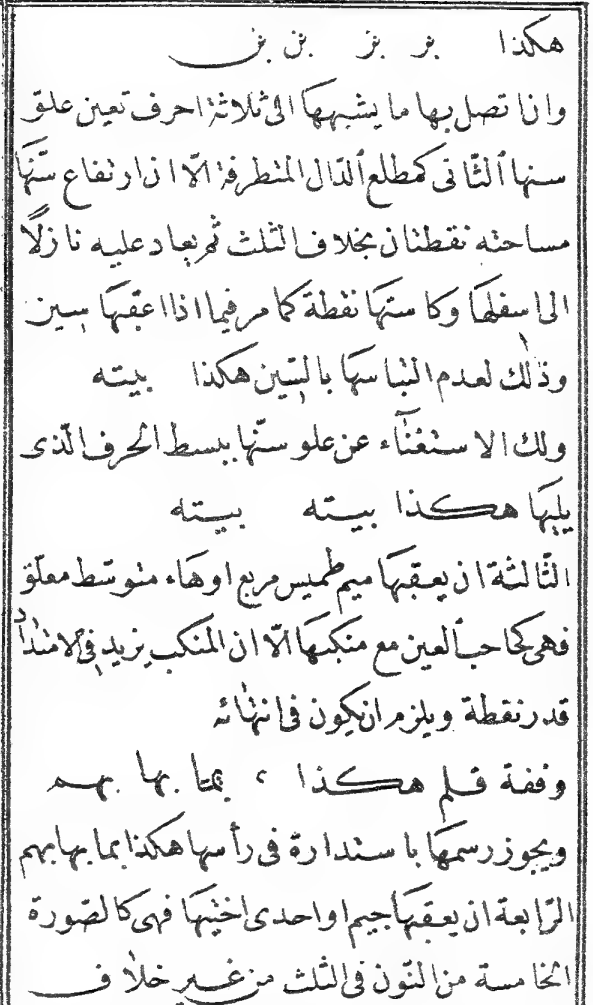 هكذا بر بز بن بن
وان اتصل بها ما يشبهها الى ثلاثة احرف تعين علو
سنها الثانى كمطلع الدال المتطرفة الّا ان ارتفاع سنّها
مساحته نقطتان بخلاف الثلث ثم يعاد عليه نازلًا
الى اسفلها وكا سنتها نقطة كما مر فيما اذا اعقبها سين
وذلك لعدم التباسها بالسّين هكذا بيته
ولك الاستغنآء عن علو سنّها ببسط الحرف الّذى
يليها هكذا بيته بيته
الثّالثة ان يعقبها ميم طميس مربع او هاء متوسّط معلّق
فهى كحاجب العين مع منكبها الّا ان المنكب يزيد فى الامتداد
قدر نقطة ويلزم ان يكون فى انتهائه
وقفة قلم هكذا ، بما بها بهم
ويجوز رسمها باستدارة فى رأسها هكذا بما بها بهم
الرّابعة ان يعقبها جيم او احدى اختيها فهى كالصّورة
الخامسة من النّون فى الثلث من غير خلاف